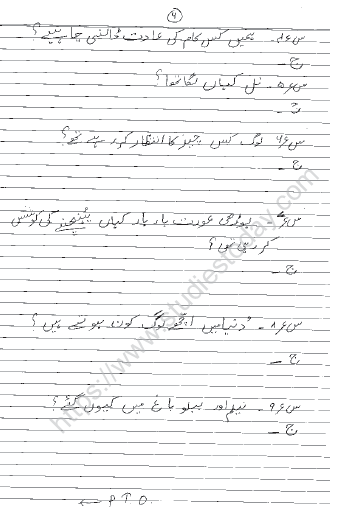 ۶
س۴۔ ہمیں کس کام کی عادت ڈالنی چاہیے؟
ج۔
س۵۔ نل کہاں لگا تھا؟
ج۔
س۶۔ لوگ کس چیز کا انتظار کر رہے تھے؟
ج۔
س۷۔ بوڑھی عورت بار بار کہاں پہنچنے کی کوشش
کر رہی تھی؟
ج۔
س۸۔ دُنیا میں اچھے لوگ کون ہوتے ہیں؟
ج۔
س۹۔ نیلم اور ببلو باغ میں کیوں گئے؟
ج۔
← P.T.O.
https://www.studiestoday.com